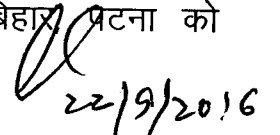 बिहार, पटना को
22/9/2016